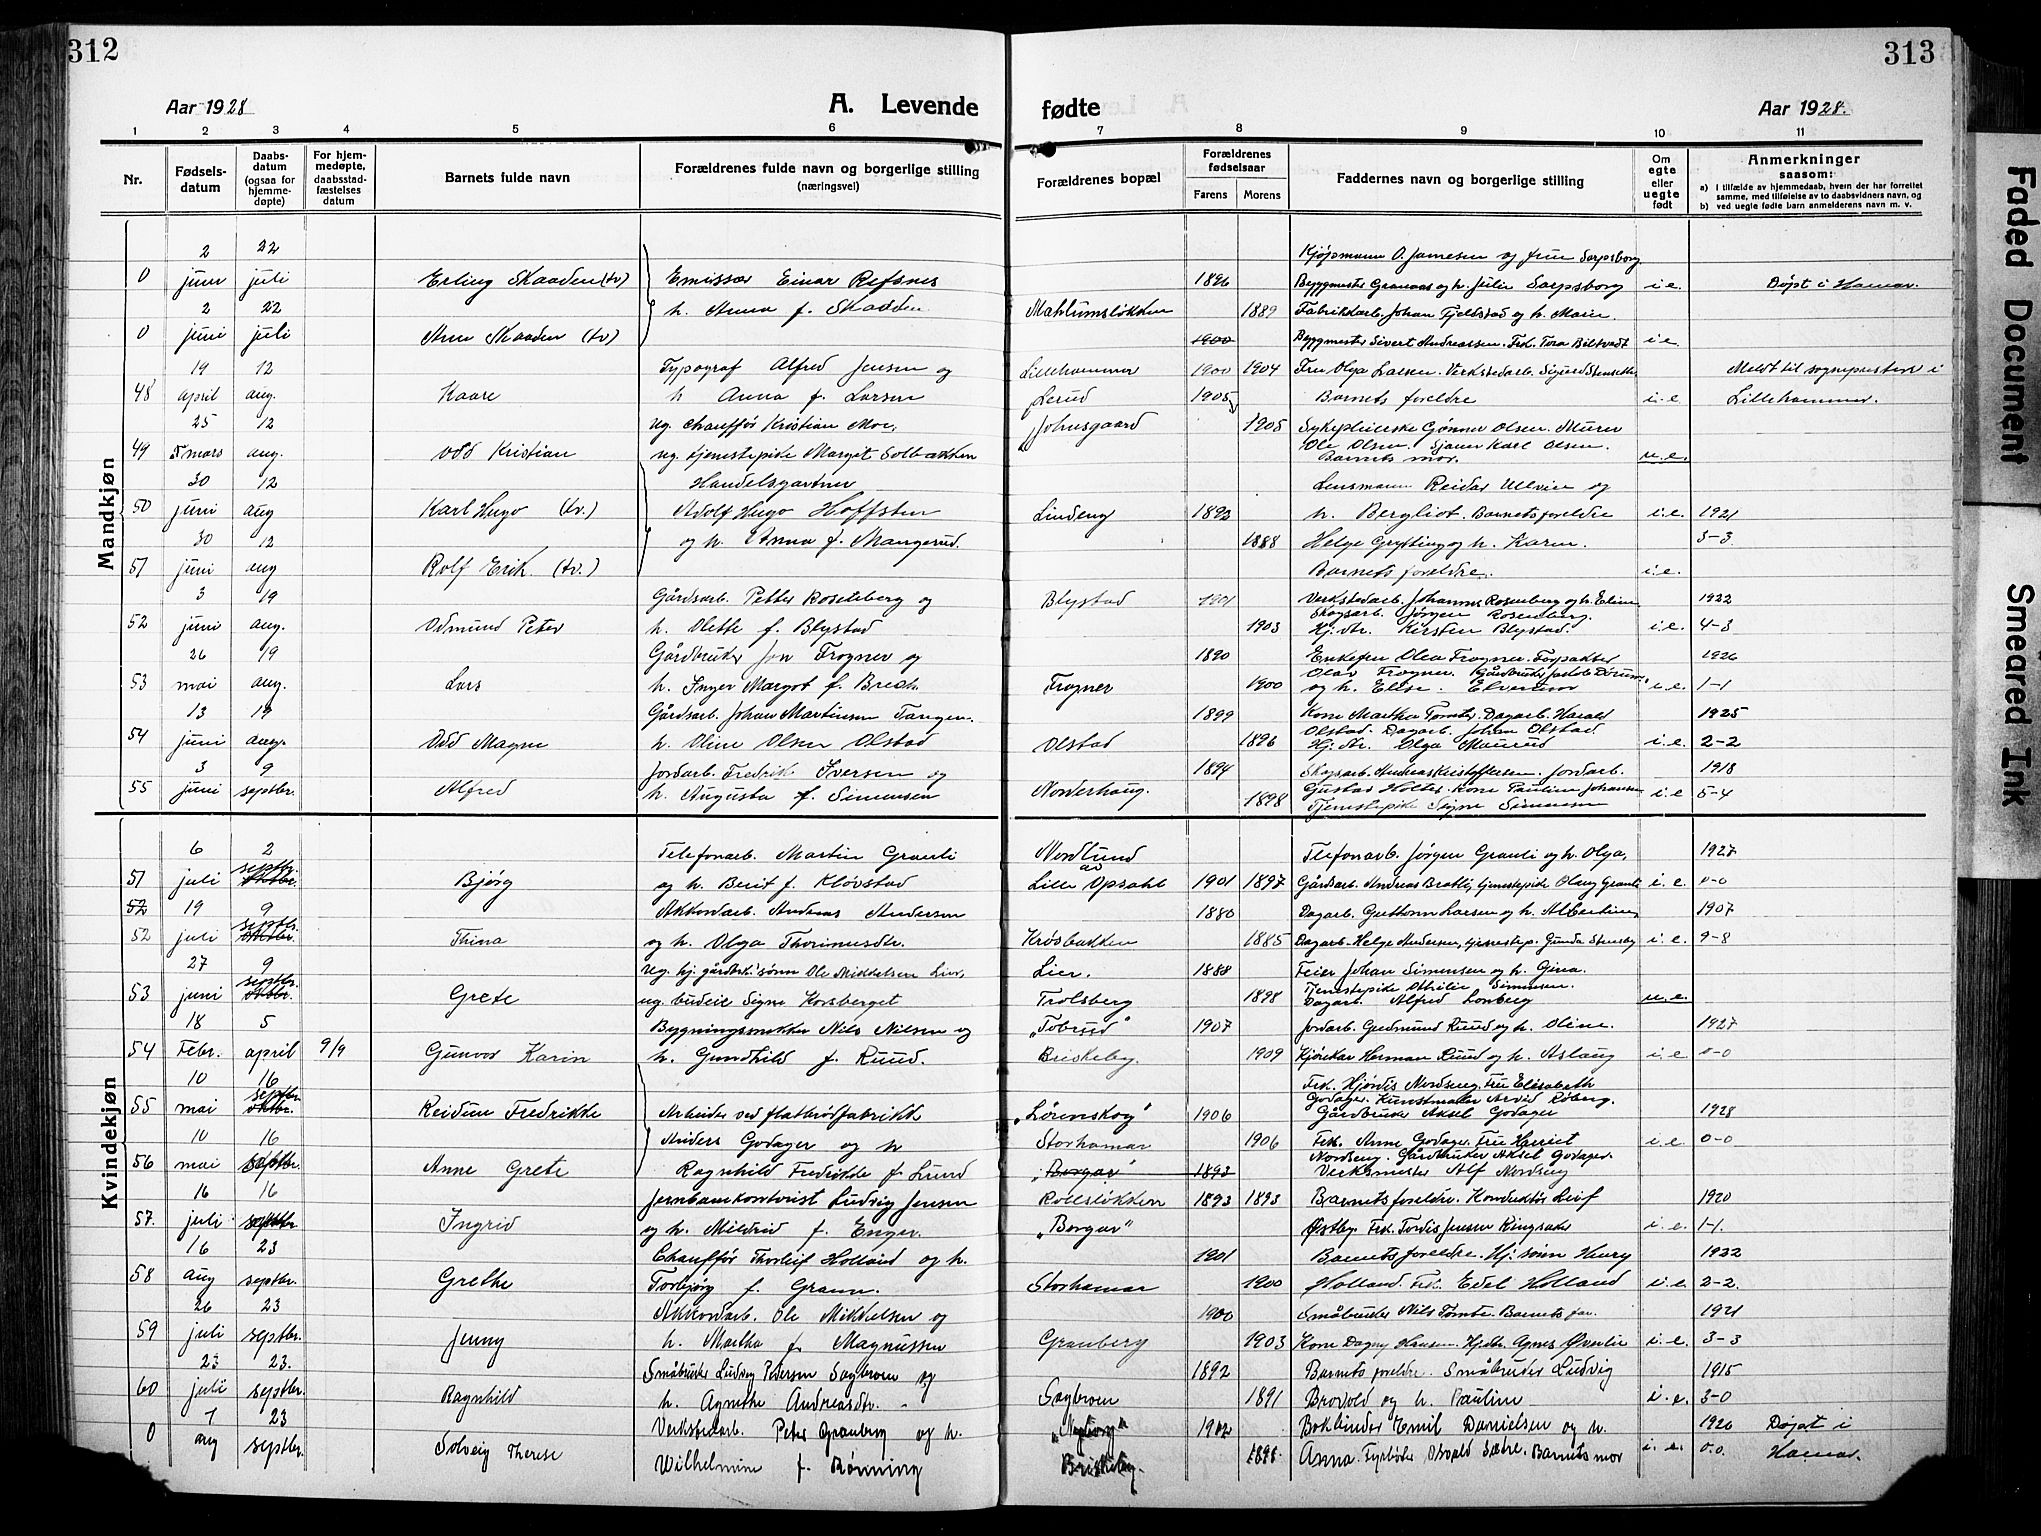 312
313
Aar 1928
A. Levende
fødte
Aar 1928.
1 2 3 4 5 6 7 8 9 10 11
Nr.
Fødsels-
datum
Daabs-
datum
(ogsaa for
hjemme-
døpte)
For hjem-
medøpte,
daabsstad-
fæstelses
datum
Barnets fulde navn
Forældrenes fulde navn og borgerlige stilling
(næringsvei)
Forældrenes bopæl
Forældrenes
fødselsaar
Farens Morens
Faddernes navn og borgerlige stilling
Om
egte
eller
uegte
født
Anmerkninger
saasom:
a) i tilfælde av hjemmedaab, hvem der har forrettet
samme, med tilføielse av to daabsvidners navn, og
b) ved uegte fødte barn anmelderens navn m. v.
Mandkjøn
2 22 Kjøpmann O. Jamesen og frue Sarpsborg
0 juni juli Erling Skaaden (tv) Emissær Einar Refsnes 1896 Byggmester Granaas og h. Julie Sarpsborg i.e. Døpt i Hamar.
2 22 h. Anna f. Skaaden Mahlumsløkken 1889 Fabrikkarb. Johan Fjeldstad og h. Marie.
0 juni juli Arne Skaaden (tv) 1900 Byggmester Sivert Andreassen. Frk. Tora i.e.
19 12 Typograf Alfred Jensen og Lillehammer 1900 1904 Fru Olga Larsen. Verkstedarb. Sigurd Meldt til sognepresten i
48 april aug. Kaare h. Anna f. Larsen Lerud 1905 Barnets foreldre i.e Lillehammer.
25 12 ug. chauffør Kristian Moe, Johnsgaard 1905 Sykepleierske Gunnor Olsen. Murer
49 mars aug. Odd Kristian ug. tjenestepike Margit Solbakken Ole Olsen. Karl Olsen.
Barnets mor. u.e.
30 12 Handelsgartner Lensmann Reidar Ullvin og
50 juni aug Karl Hugo (tv.) Adolf Hugo Hoffsten Lindeng 1892 h. Bergliot. Barnets foreldre i.e. 1921
30 12 og h. Anna f. Mangerud. 1888 Helge Grytting og h. Karen. 3-3
51 juni aug Rolf Erik. (tv.) Barnets foreldre. i.e.
3 19 Gårdsarb. Petter Rosenberg og Blystad 1901 Verkstedarb. Johannes Rosenberg og h. Eline 1922
52 juni aug. Odmund Peter h. Olette f. Blystad 1903 Skogsarb. Jørgen Rosenberg.
Hj. dtr. Kirsten Blystad. i.e. 4-3
26 19 Gårdbruker Jon Frogner og 1890 Enkefru Olea Frogner. Forpakter 1926
53 mai aug. Lars h. Inger Margot f. Brech. Frogner 1900 Olav Frogner. Gårdbruker
og h. Elise. i.e. 1-1
13 19 Gårdsarb. Johan Martinsen Tangen. 1899 Kone Martha Tomter. Dagarb. Harald 1925
54 juni aug. Odd Magne h. Oline Olsen Olstad Olstad 1896 Olstad. Dagarb. Johan Olstad
Hj. dtr. Olga Maurud i.e. 2-2
3 9 Jordarb. Fredrik Iversen og 1894 Skogsarb. Andreas Kristoffersen. Jordarb. 1918
55 juni septbr. Alfred h. Augusta f. Simensen Norderhaug. 1898 Gustav Holter. Kone Pauline Johansen
Tjenestepike Signe Simensen i.e 5-4
Kvindekjøn
6 2 Telefonarb. Martin Granli Nordlund Tlefonarb. Jørgen Granli og h. Olga, 1927
51 juli septbr. oktbr. Bjørg og h. Berit f. Kløvstad av Lille Opsahl 1901 1897 Gårdsarb. Andreas Bratli, tjenestepike Olaug Granli i.e. 0-0
52 19 9 Akkordarb. Andreas Andersen 1880 Dagarb. Guttorm Larsen og h. Albertine, 1907
52 juli septbr. oktbr. Thina og h. Olga Thorinusdtr. Krøsbakken 1885 Dagarb. Helge Andersen, tjenestep. Gunda Stensby i.e. 9-8
27 9 ug. hj. gårdbr. sønn Ole Mikkelsen Lier, Lier. 1888 Feier Johan Simensen og h. Gina.
53 juni septbr. oktbr. Grete ug. budeie Signe Korsberget Trolsberg 1898 Tjenestepike Othilie Simensen.
Dagarb. Alfred Lonberg u.e.
18 5 Bygningssnekker Nils Nilsen og "Tobrud" 1907 Jordarb. Gudmund Ruud og h. Oline. 1927
54 Febr. april 9/9 Gunvor Karin h. Gundhild f. Ruud. Briskeby. 1909 Kjørekar Herman Ruud og h. Aslaug i.e 0-0
10 16 Frk. Hjørdis Nordseng. Fru Elisabeth
55 mai septbr. oktbr. Reidun Fredrikke Arbeider ved flatbrødfabrikk "Lørenskog" 1906 Godager. Kunstmaler Arvid Roberg.
Gårdbruker Aksel Godager 1928
10 16 Anders Godager og h Storhamar 1906 Frk. Anne Godager. Fru Harriet i.e 0-0
56 mai septbr. Anne Grete Ragnhild Fredrikke f. Lund "Borgar" 1893 Nordseng. Gårdbruker Aksel Godager.
Verksmester Alf Nordseng
16 16 Jernbanekontorist Ludvig Jensen Rollsløkken 1893 1893 Barnets foreldre. Konduktør Leif 1920
57. juli septbr Ingrid og h. Mildrid f. Enger. "Borgar" Østby. Frk. Tordis Jensen Ringsaker i.e. 1-1.
16 23 Chauffør Thorleif Holland og h. 1901 Barnets foreldre. Hj. sønn Henry 1922
58 aug septbr. Grethe Torbjørg f. Gram. Storhamar 1900 Holland. Frk. Edel Holland i.e. 2-2.
26 23 Akkordarb. Ole Mikkelsen og 1900 Småbruker Nils Tomte. Barnets far. 1921
59 juli septbr. Jenny h. Martha f. Magnussen Granberg 1903 Kone Dagny Hansen. Hjdtr. Agnes Øverlie i.e. 3-3
23 23. Småbruker Ludvig Pedersen Sagbroen og 1892 Barnets foreldre. Småbruker Ludvig 1915
60 juli septbr. Ragnhild h. Agnethe Andreasdtr. Sagbroen 1891 Brovold og h. Pauline i.e. 3-0
7 23 Verkstedarb. Peter Granberg og h. 1902 Bokbinder Emil Danielsen og h. 1926 Døpt i
0 aug septbr. Solveig Therese Wilhelmine f. Rønning Briskeby. 1898 Anna. Fyrbøter Osvald Sætre. Barnets mor i.e. 0-0. Hamar.
Faded Document
Smeared Ink